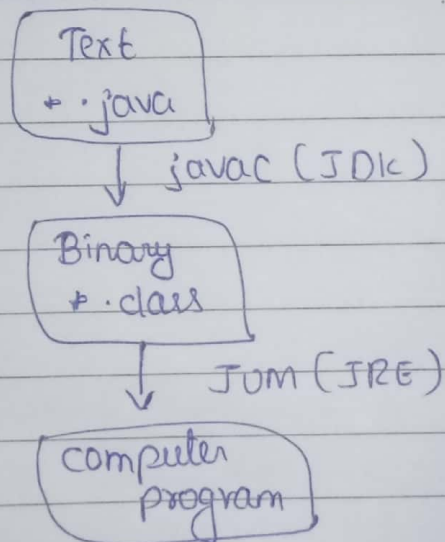 Text
* .java
javac (JDK)
Binary
* .class
JVM (JRE)
computer
program